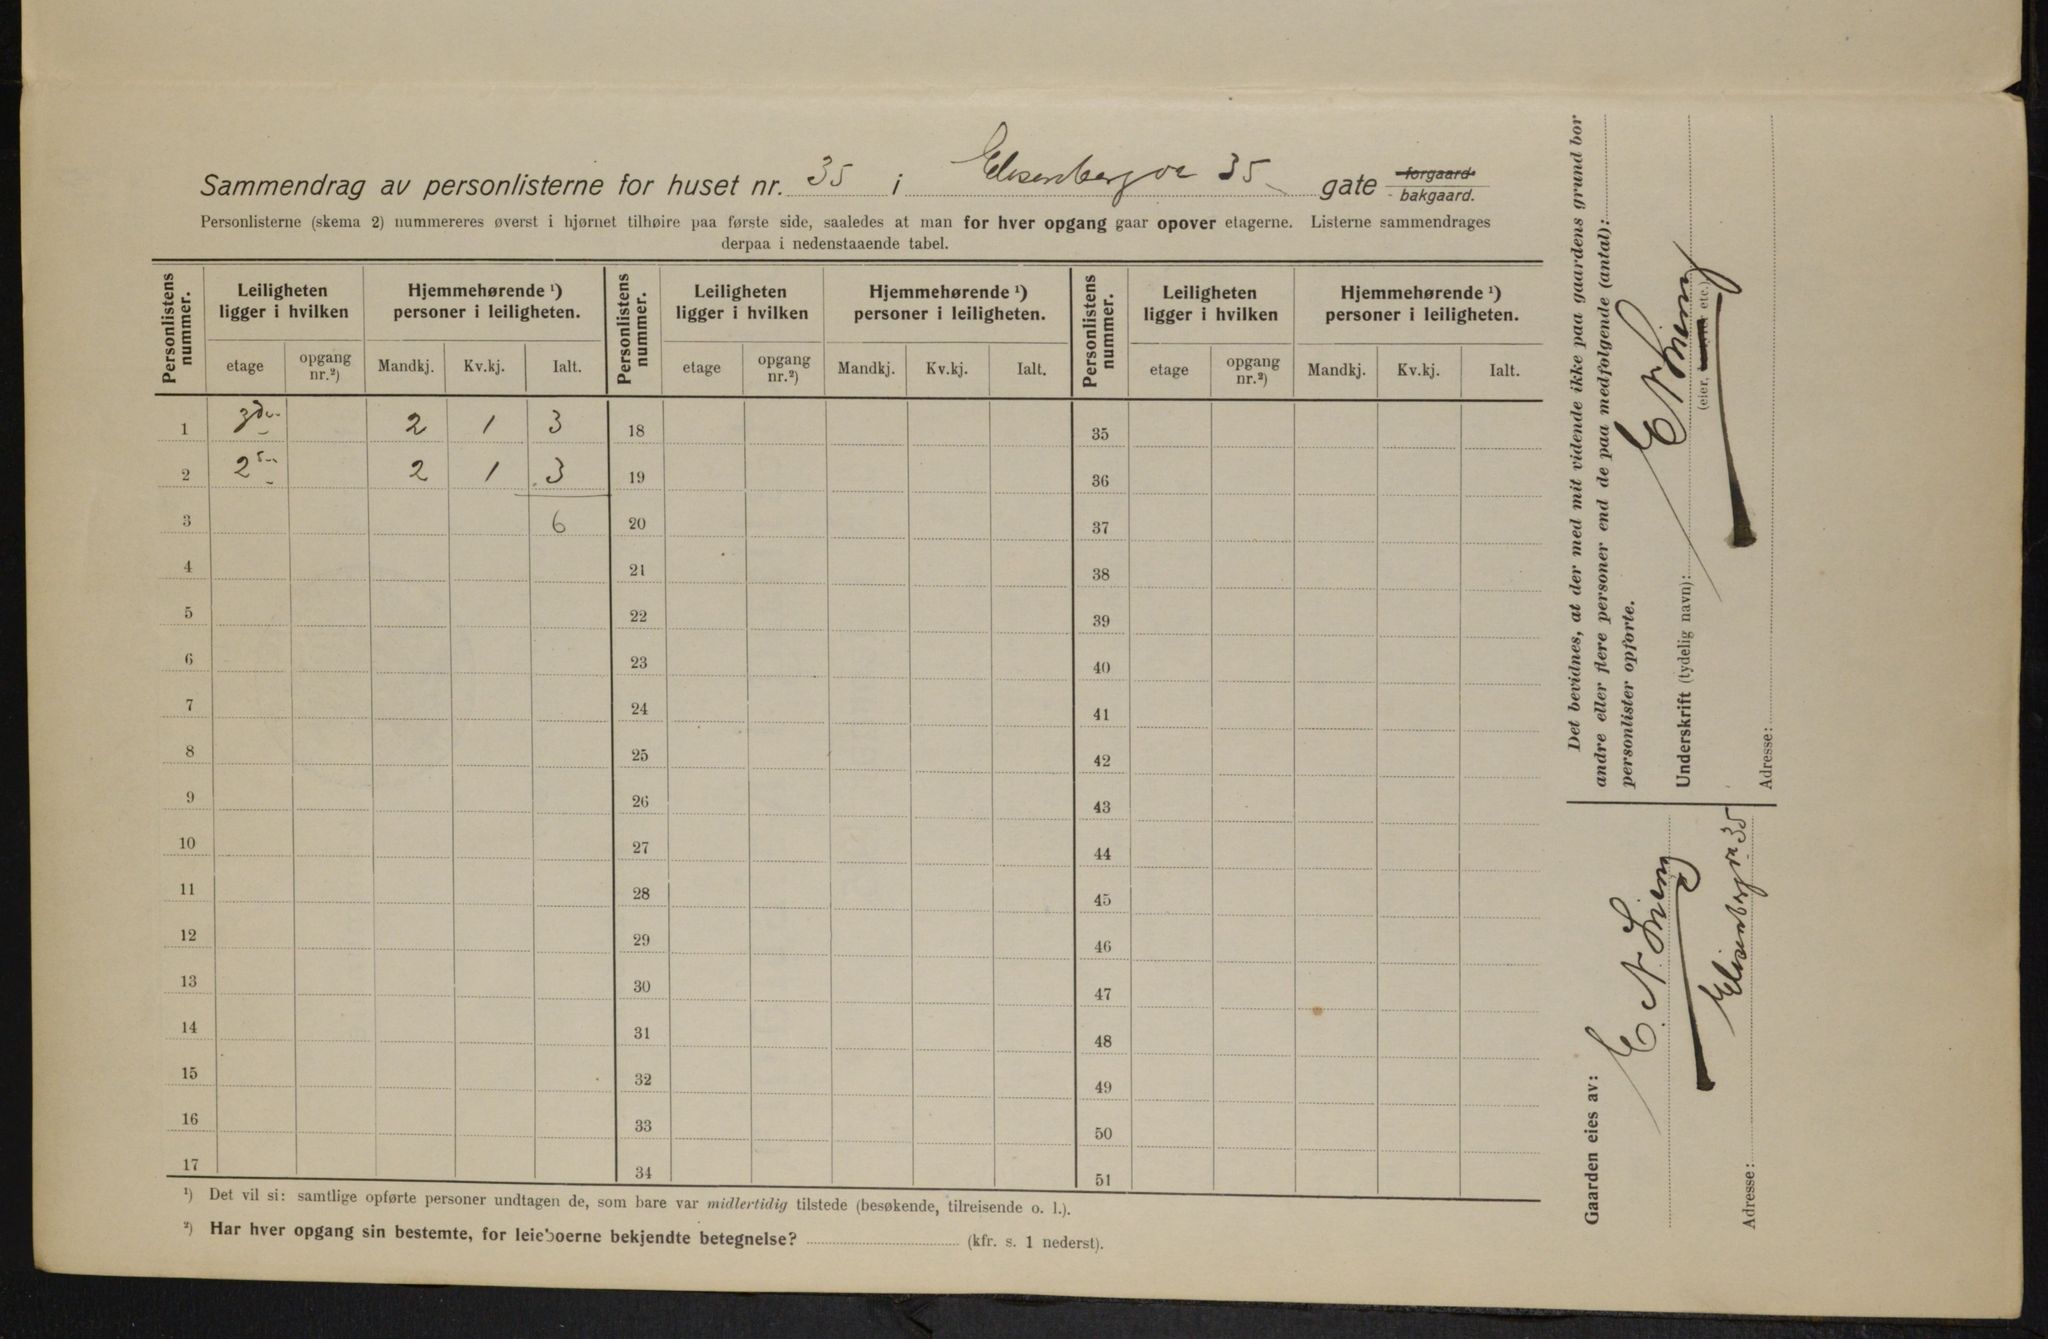 Sammendrag av personlisterne for huset nr. 35 i Elisenbergve 35 gate forgaard. bakgaard.
Personlisterne (skema 2) nummereres øverst i hjørnet tilhøire paa første side, saaledes at man for hver opgang gaar opover etagerne. Listerne sammendrages
derpaa i nedenstaaende tabel.
Personlistens nummer. Leiligheten ligger i hvilken Hjemmehørende ¹) personer i leiligheten. Personlistens nummer. Leiligheten ligger i hvilken Hjemmehørende ¹) personer i leiligheten. Personlistens nummer. Leiligheten ligger i hvilken Hjemmehørende ¹) personer i leiligheten.
etage opgang nr.²) Mandkj. Kv.kj. Ialt. etage opgang nr.²) Mandkj. Kv.kj. Ialt. etage opgang nr.²) Mandkj. Kv.kj. Ialt.
1 2 1 3 18 35
2 2 1 3 19 36
3 6 20 37
4 21 38
5 22 39
6 23 40
7 24 41
8 25 42
9 26 43
10 27 44
11 28 45
12 29 46
13 30 47
14 31 48
15 32 49
16 33 50
17 34 51
¹) Det vil si: samtlige opførte personer undtagen de, som bare var midlertidig tilstede (besøkende, tilreisende o. l.).
²) Har hver opgang sin bestemte, for leieboerne bekjendte betegnelse? (kfr. s. 1 nederst).
Det bevidnes, at der med mit vidende ikke paa gaardens grund bor
andre eller flere personer end de paa medfolgende (antal):
personlister opførte.
Underskrift (tydelig navn): E N
(eier, etc.)
Adresse:
Gaarden eies av:
E. N.
Adresse: Elisenbergve 35